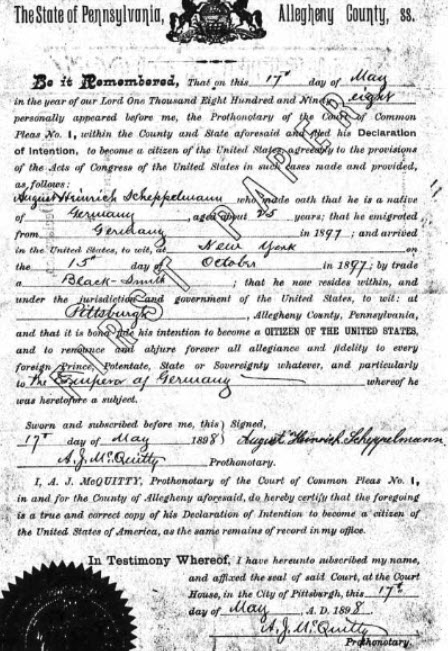 The State of Pennsylvania, Allegheny County, ss.
Be it Remembered, That on this 17th day of May
in the year of our Lord One Thousand Eight Hundred and Ninety eight
personally appeared before me, the Prothonotary of the Court of Common
Pleas No. 1, within the County and State aforesaid and filed his Declaration
of Intention, to become a citizen of the United States, agreeably to the provisions
of the Acts of Congress of the United States in such cases made and provided,
as follows:
August Heinrich Scheppelmann who made oath that he is a native
of Germany, aged about 25 years; that he emigrated
from Germany in 1897; and arrived
in the United States, to wit, at New York on
the 15th day of October in 1897; by trade
a Black-Smith; that he now resides within, and
under the jurisdiction and government of the United States, to wit: at
Pittsburgh, Allegheny County, Pennsylvania,
and that it is bona fide his intention to become a CITIZEN OF THE UNITED STATES,
and to renounce and abjure forever all allegiance and fidelity to every
foreign Prince, Potentate, State or Sovereignty whatever, and particularly
to The Emperor of Germany whereof he
was heretofore a subject.
Sworn and subscribed before me, this } Signed,
17th day of May 1898 } August Heinrich Scheppelmann.
A. J. McQuitty
Prothonotary.
I, A. J. McQUITTY, Prothonotary of the Court of Common Pleas No. 1,
in and for the County of Allegheny aforesaid, do hereby certify that the foregoing
is a true and correct copy of his Declaration of Intention to become a citizen of
the United States of America, as the same remains of record in my office.
In Testimony Whereof, I have hereunto subscribed my name,
and affixed the seal of said Court, at the Court
House, in the City of Pittsburgh, this 17th
day of May, A. D. 1898.
A. J. McQuitty
Prothonotary.
FIRST PAPER